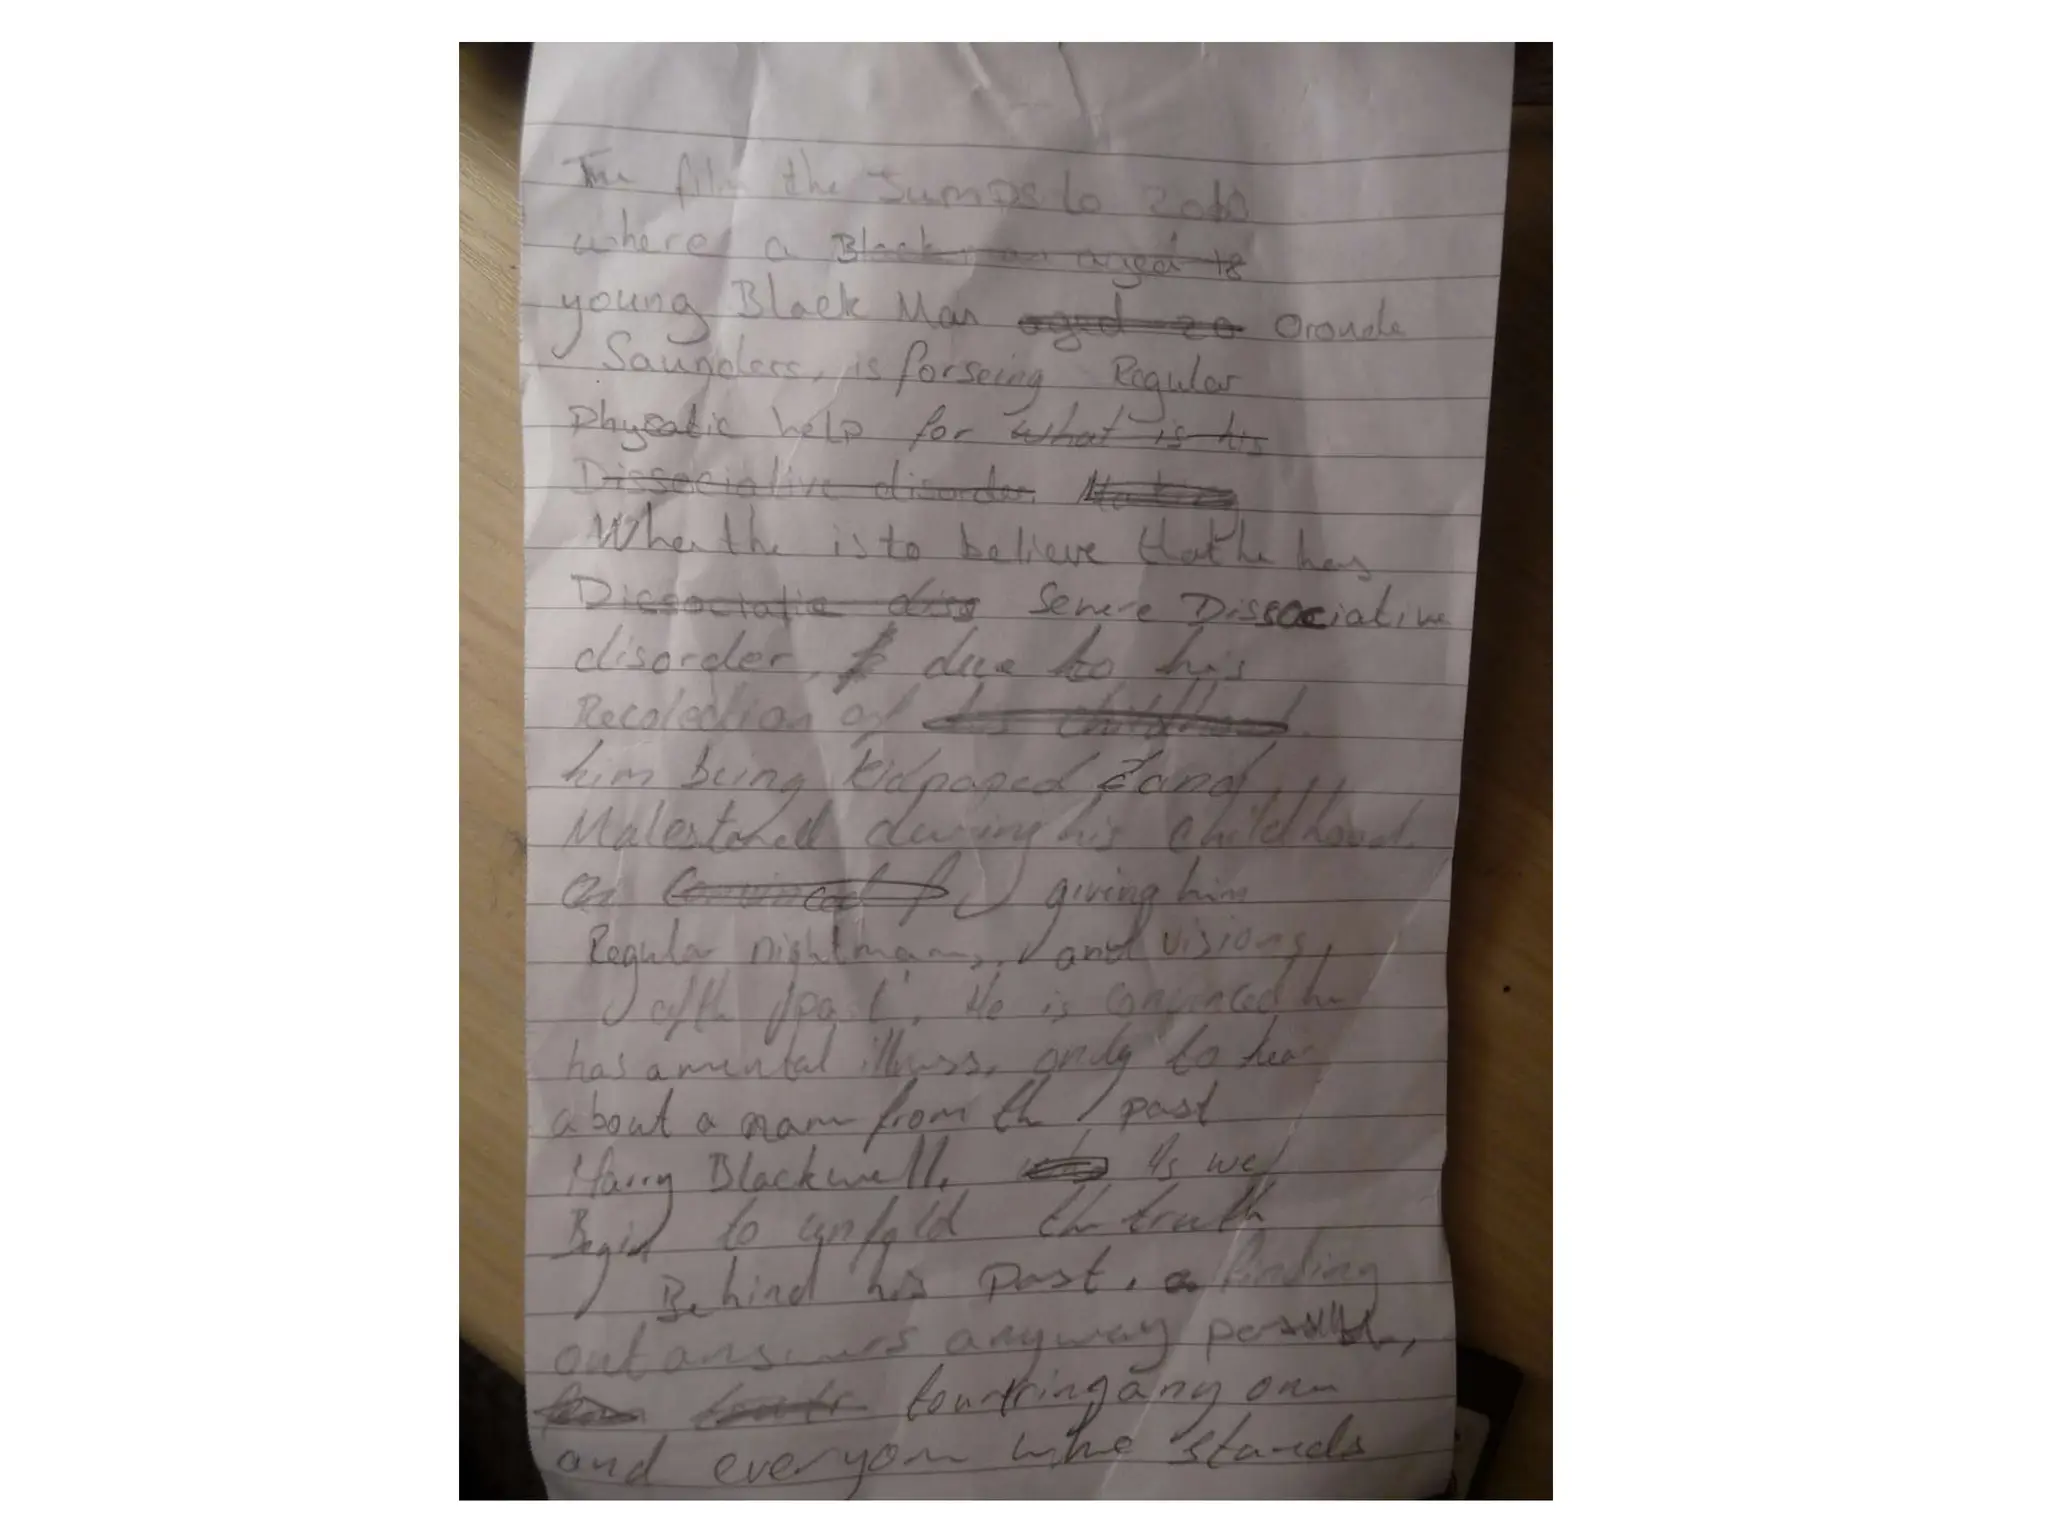 The film the Jumps to
where a Black man aged 18
young Black Man aged 20 Oronde
Saunders, is forseing Regular
Phycatic help for what is his
Dissociative disorder.
When the is to believe that he has
Dissociatie diso Severe Dissociative
disorder, due to his
Recolection of his childhood.
him being kidnaped and
Malestored during his childhood.
Convinced giving him
Regular nightmares, and visions,
of the past. He is convinced he
has a mental illness, only to hear
about a name from the past
Harry Blackwell. who As we
Begin to unfold the truth
Behind his past, finding
out answers anyway possible,
tourtring any one
and everyone who stands